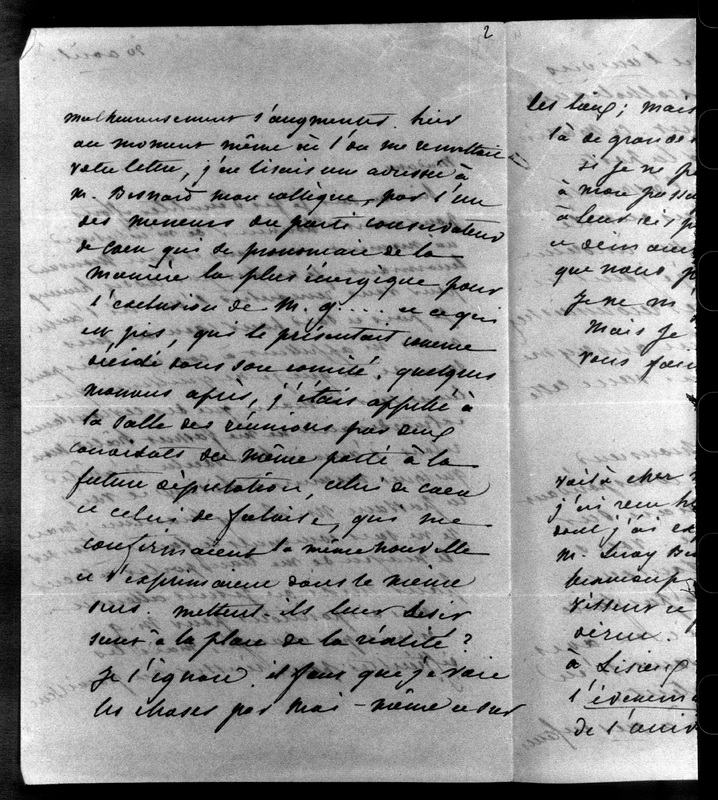 2
malheureusement s'augmenter. hier
au moment même où l'on me remettait
votre lettre, j'en lisais une adressée à
M. Besnard mon collègue, par l'un
des meneurs du parti conservateur
de Caen qui se prononçait de la
manière la plus énergique pour
l'exclusion de M. g.... et ce qui
est pis, qui le présentait comme
décidé dans son comité. quelques
momens après, j'étais appelé à
la salle des réunions par deux
candidats du même parti à la
future députation, celui de Caen
et celui de falaise, qui me
confirmaient la même nouvelle
et s'exprimaient dans le même
sens. mettent-ils leur désir
à la place de la réalité?
je l'ignore. il faut que je voie
les choses par moi-même et sur
les lieux; mais
là de grandes
si je ne p
à mon
à leur
que nous
je ne m
mais je
vous
voilà cher
j'ai
dont j'ai ex
M. Leroy B
beaucoup
à Lisieux
l'évènem
de l'